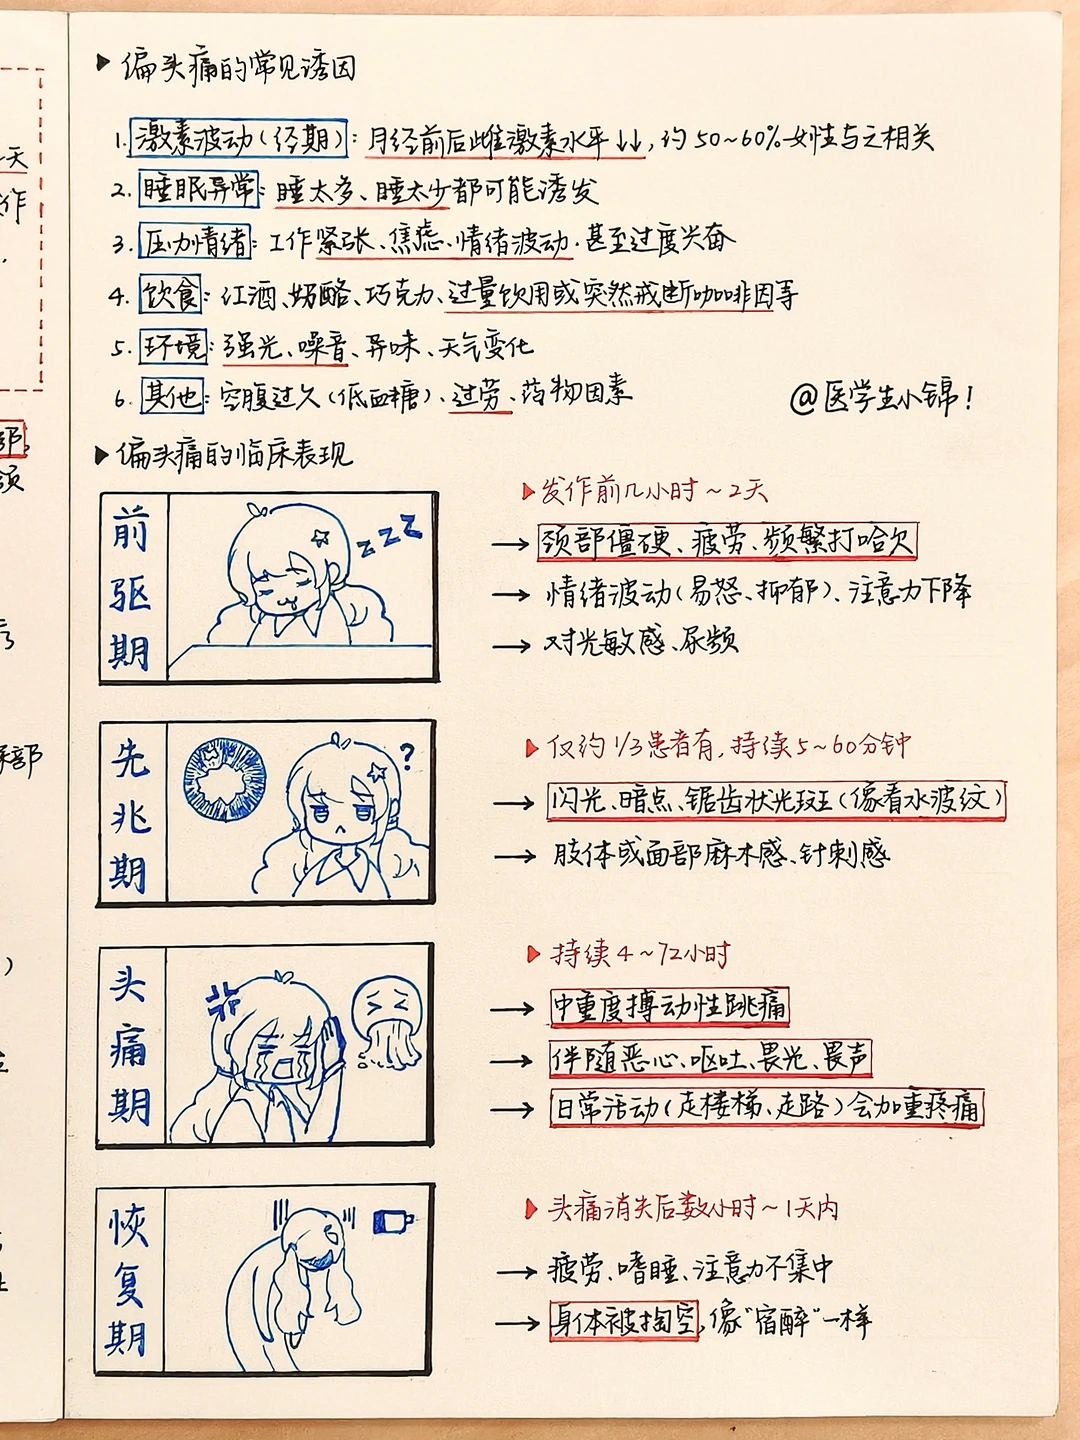 天
作
部
颈
部
▶ 偏头痛的常见诱因
1. 激素波动(经期): 月经前后雌激素水平↓↓, 约50~60%女性与之相关
2. 睡眠异常: 睡太多、睡太少都可能诱发
3. 压力情绪: 工作紧张、焦虑、情绪波动、甚至过度兴奋
4. 饮食: 红酒、奶酪、巧克力、过量饮用或突然戒断咖啡因等
5. 环境: 强光、噪音、异味、天气变化
6. 其他: 空腹过久(低血糖)、过劳、药物因素
@医学生小锦!
▶ 偏头痛的临床表现
前驱期
zzz
▶ 发作前几小时~2天
→ 颈部僵硬、疲劳、频繁打哈欠
→ 情绪波动(易怒、抑郁)、注意力下降
→ 对光敏感、尿频
先兆期
?
▶ 仅约1/3患者有, 持续5~60分钟
→ 闪光、暗点、锯齿状光斑(像看水波纹)
→ 肢体或面部麻木感、针刺感
头痛期
▶ 持续4~72小时
→ 中重度搏动性跳痛
→ 伴随恶心、呕吐、畏光、畏声
→ 日常活动(走楼梯、走路)会加重疼痛
恢复期
▶ 头痛消失后数小时~1天内
→ 疲劳、嗜睡、注意力不集中
→ 身体被掏空, 像"宿醉"一样